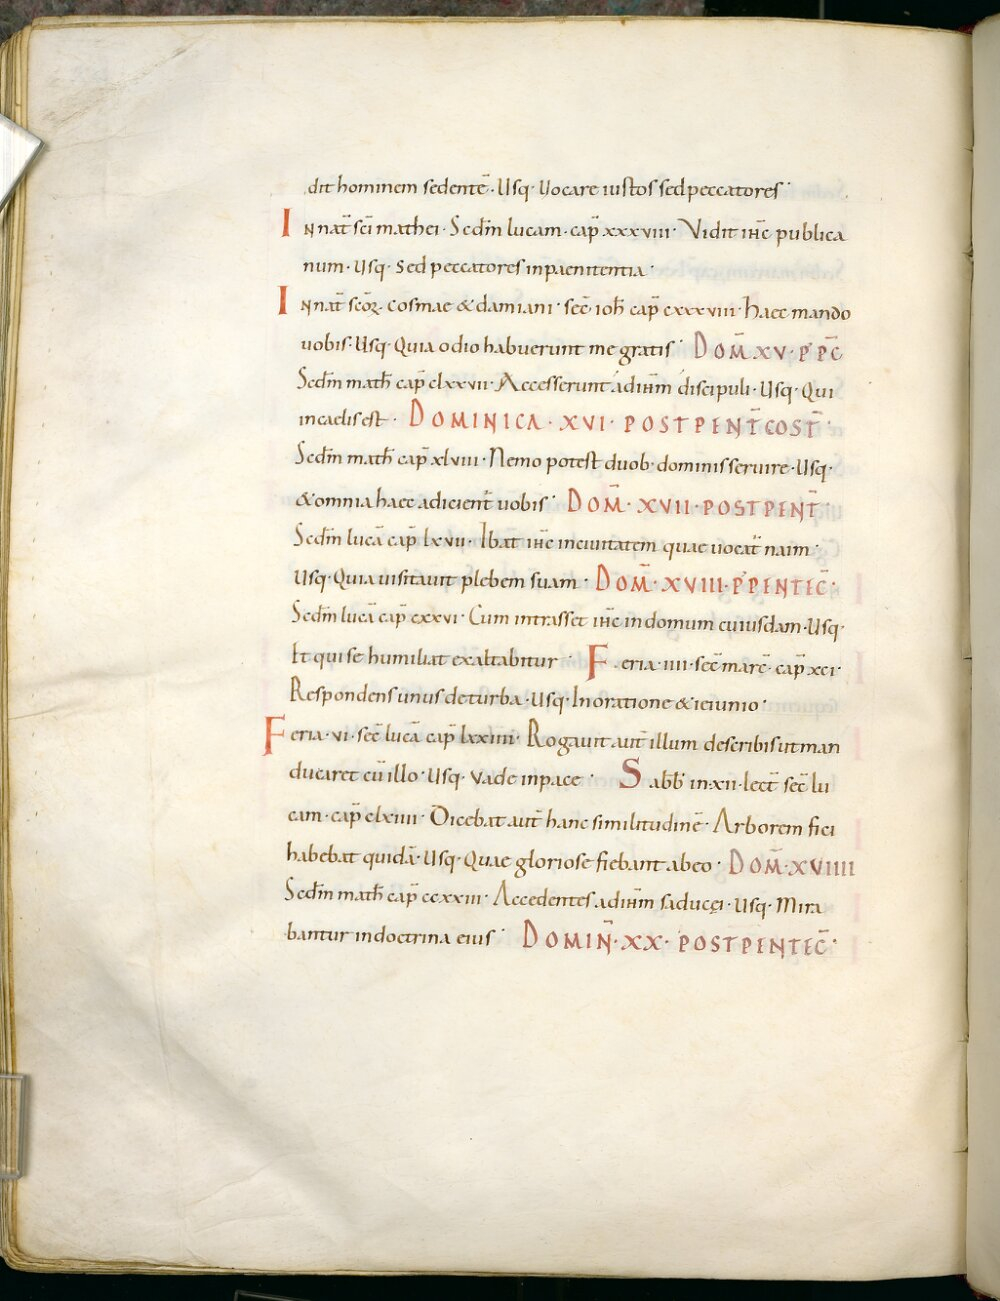 dit hominem sedentē · Usq· Uocare iustos sed peccatores ·
IN nat̄ sc̄i mathei · Sc̄dm̄ lucam · cap̄ xxxviii · Vidit ih̄c publica
num · Usq· sed peccatores in paenitentia ·
IN nat̄ sc̄oꝝ cosmae & damiani · sec̄ ioh̄ cap̄ cxxxviii · haec mando
uobis · Usq· Quia odio habuerunt me gratis · DOM̄ XV · P̄ P̄C̄
Sc̄dm̄ math̄ cap̄ clxxvii · Accesserunt ad ih̄m discipuli · Usq· Qui
in caelis est · DOMINICA · XVI · POST PENT̄COST̄ ·
Sc̄dm̄ math̄ cap̄ xlviii · Nemo potest duob· dominis seruire · Usq·
& omnia haec adicient̄ uobis · DOM̄ · XVII · POST PENT̄
Sc̄dm̄ lucā cap̄ lxvii · Ibat ih̄c in ciuitatem quae uocat̄ naim ·
Usq· Quia uisitauit plebem suam · DOM̄ · XVIII · P̄ PENTEC̄ ·
Sc̄dm̄ lucā cap̄ cxxvi · Cum intrasset ih̄c in domum cuiusdam · Usq·
Et qui se humiliat exaltabitur · Feria · iiii · sec̄ marc̄ · cap̄ xci ·
Respondens unus de turba · Usq· In oratione & ieiunio ·
Feria · vi · sec̄ lucā cap̄ lxxiiii · Rogauit aut̄ illum describis ut man
ducaret cū illo · Usq· Vade in pace · Sabb̄ in · xii · lect̄ sec̄ lu
cam · cap̄ clxiiii · Dicebat aut̄ hanc similitudinē · Arborem fici
habebat quidā · Usq· Quae gloriose fiebant ab eo · DOM̄ · XVIIII
Sc̄dm̄ math̄ cap̄ ccxxiii · Accedentes ad ih̄m saducęi · Usq· Mira
bantur in doctrina eius · DOMIN̄ · XX · POST PENTEC̄ ·